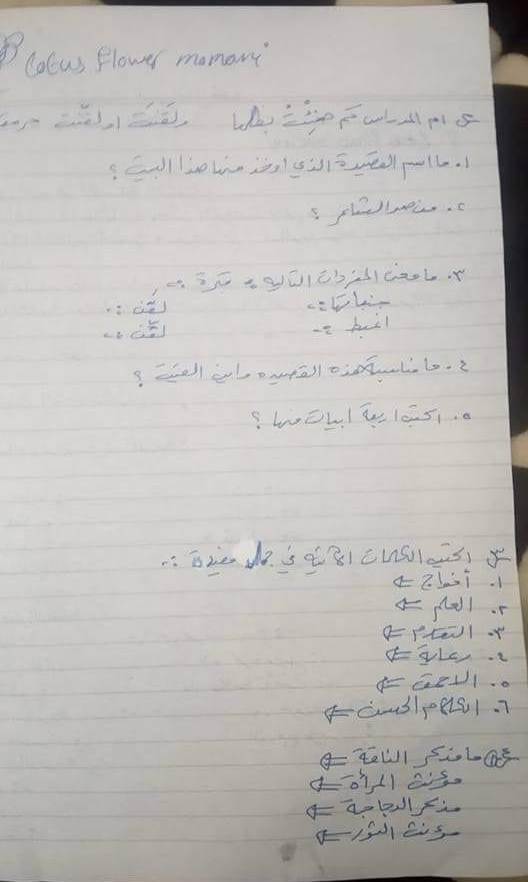 Lotus flower momani
ام المدارس كم بها ولقنت او لقنت
١. ما اسم القصيدة الذي اوخذ منها هذا البيت ؟
٢. من هو الشاعر ؟
٣. ما معنى المفردات التالية :- ثرة :-
جنباتها :- لقن :-
اغبط :- لقن :-
٤. ما مناسبة هذه القصيده واين القيت ؟
٥. اكتب اربعة ابيات منها ؟
س٣ اكتب الكلمات الآتية في جمل مفيدة :-
١. أفواج ⇐
٢. العلم ⇐
٣. التقدم ⇐
٤. رعاية ⇐
٥. الاحمق ⇐
٦. الكلام الحسن ⇐
س٤ ما مذكر الناقة ⇐
مؤنث المرأة ⇐
مذكر الدجاجة ⇐
مؤنث الثور ⇐